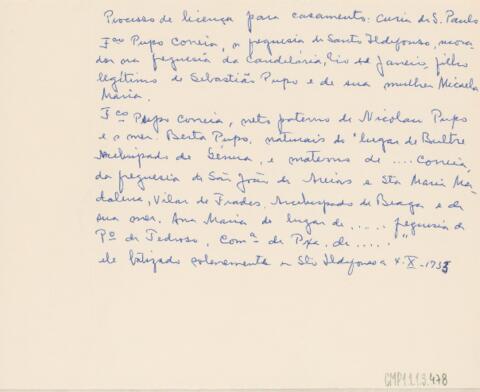 Processo de licença para casamento: Curia de S. Paulo
Fco Pupo Correia, n freguesia de Santo Ildefonso, mora-
dor na freguesia da Candelária, Rio de Janeiro, filho
legítimo de Sebastião Pupo e de sua mulher Micaela
Maria.
Fco Pupo Correia, neto paterno de Nicolau Pupo
e s/ mer. Berta Pupo, naturais do "lugar de
Arcebispado de Génova, e materno de .... Correia,
da freguesia de São João de Areias e Sta Maria Ma-
dalena, Vilar de Frades, Arcebispado de Braga e de
sua mer. Ana Maria do lugar de ..... freguesia de
Pº de Pedroso, Comª de Pxa. de ..... "
ele batizado solenemente in Sto Ildefonso a X-173
CMP1.1.1.3.478